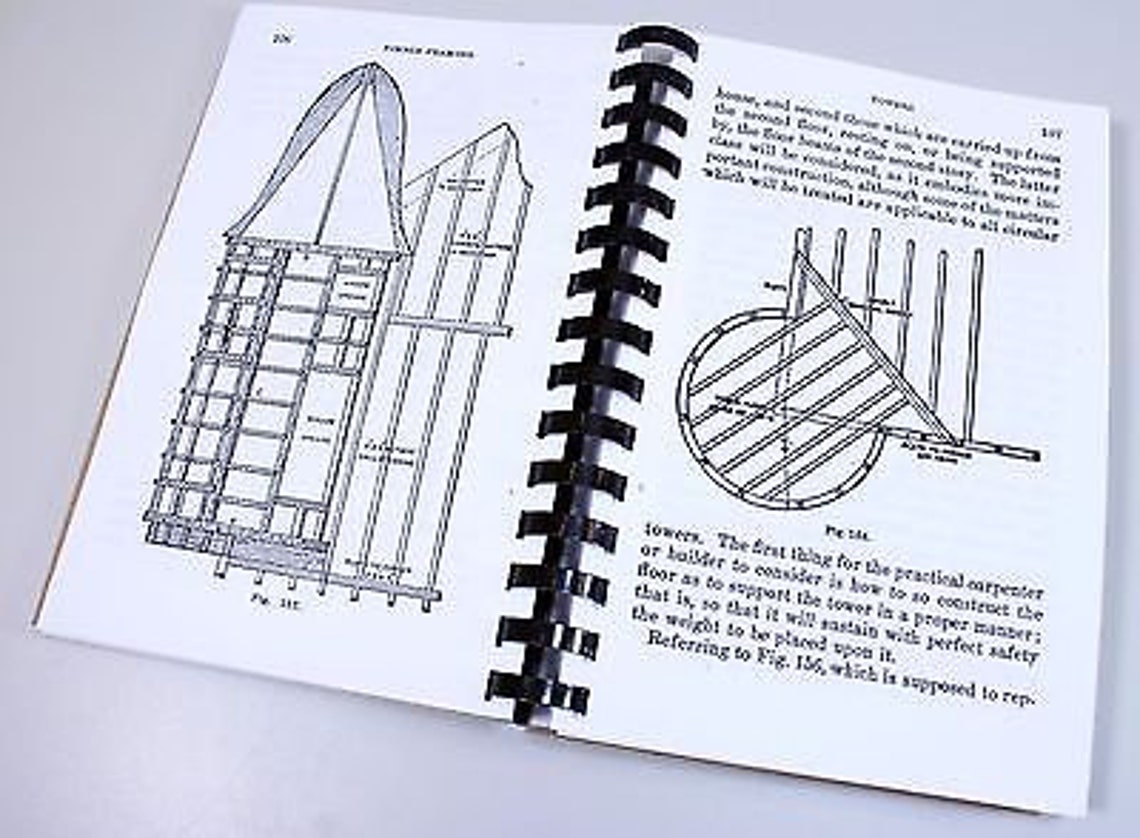 TIMBER FRAMING
Fig.
TOWERS
house, and second those which are carried up from
the second floor, resting on, or being supported
by, the floor beams of the second story. The latter
class will be considered, as it embodies more im-
portant construction, although some of the matters
which will be treated are applicable to all circular
Fig.
towers. The first thing for the practical carpenter
or builder to consider is how to so construct the
floor as to support the tower in a proper manner;
that is, so that it will sustain with perfect safety
the weight to be placed upon it.
Referring to Fig. 156, which is supposed to rep-